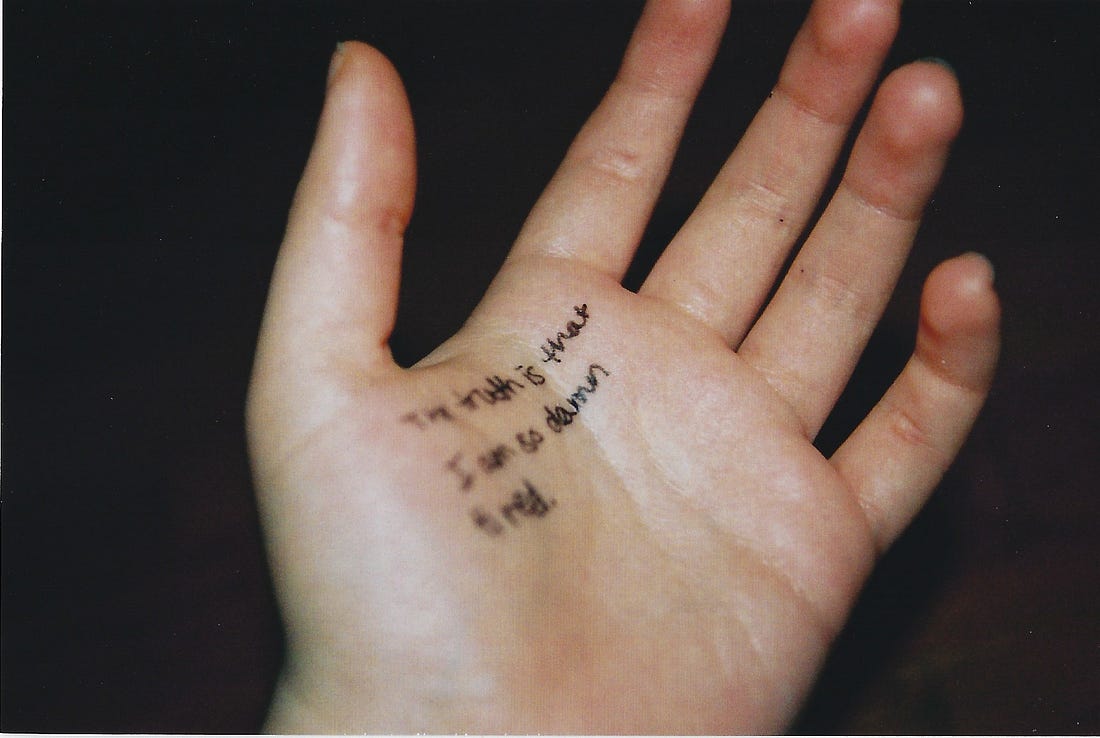 The truth is that
I am so damn
tired.